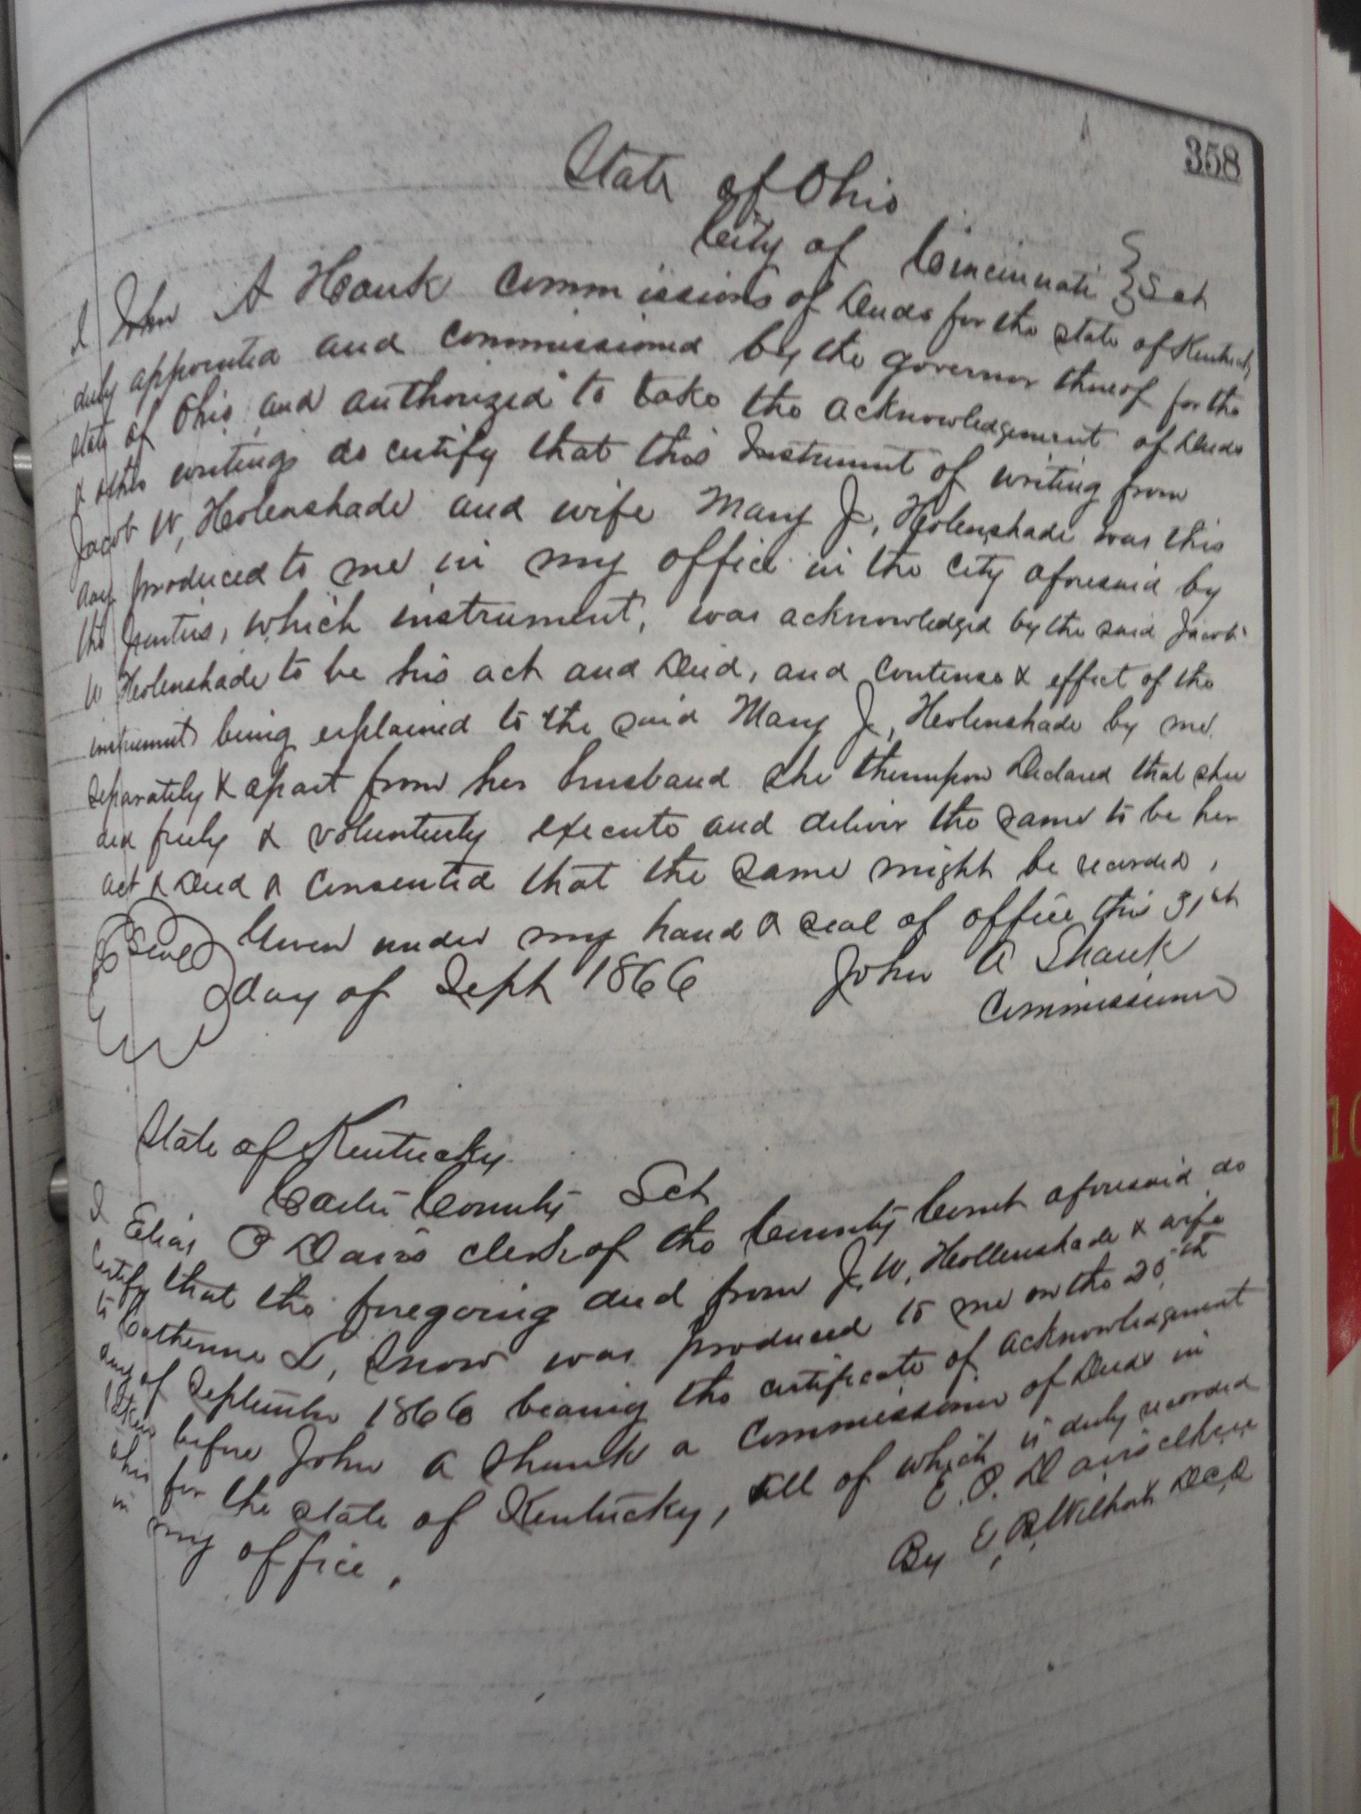 358
State of Ohio
City of Cincinnati } Sct
I John A Hauk Commissions of Deeds for the state of Kentucky
duly appointed and commissioned by the governor thereof for the
state of Ohio and authorized to take the acknowledgement of Deeds
& other writings do certify that this Instrument of writing from
Jacob W, Holenshade and wife Mary J, Holenshade was this
day produced to me in my office in the City aforesaid by
the parties, which instrument, was acknowledged by the said Jacob
W Holenshade to be his act and Deed, and Contense & effect of the
instrument being explained to the said Mary J, Holenshade by me
separately & apart from her husband she thereupon Declared that she
did freely & volunterly execute and deliver the same to be her
act & Deed & Consented that the same might be recorded,
Seal Given under my hand & seal of office this 31st
day of Sept 1866 John A Shank
Commissioner
State of Kentucky
Carter County Sct
I Elias P Davis clerk of the County Court aforesaid do
Certify that the foregoing deed from J. W, Hollenshade & wife
to Catherine L, Snow was produced to me on the 25th
day of September 1866 bearing the certificate of acknowledgment
taken before John A Shank a Commissioner of Deeds in
Ohio for the state of Kentucky, all of which is duly recorded
in my office, E. P. Davis clk
By E, B, Wilhoit D C